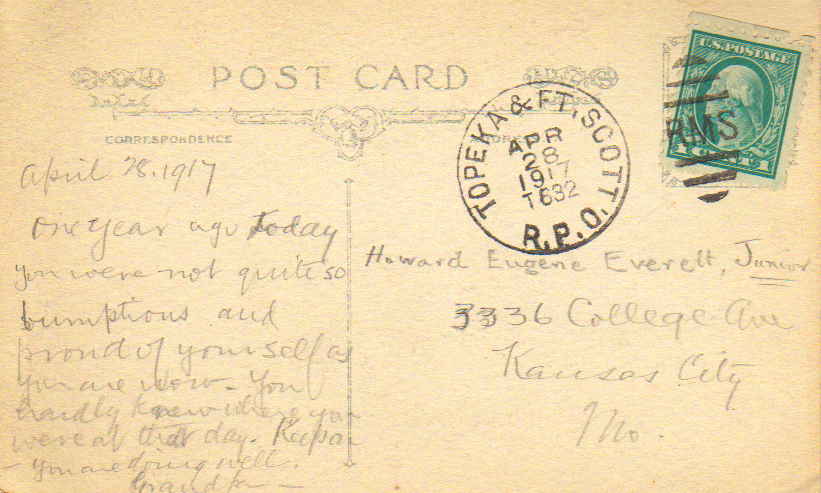 POST CARD
CORRESPONDENCE
U.S. POSTAGE
1 CENT 1
RMS
TOPEKA & FT. SCOTT.
APR
28
1917
T632
R.P.O.
April 28, 1917
One Year ago today
you were not quite so
bumptious and
proud of yourself as
you are now - You
hardly knew where you
were at that day. Keep on
- you are doing well.
Grandpa -
Howard Eugene Everett, Junior
3336 College Ave
Kansas City
Mo.